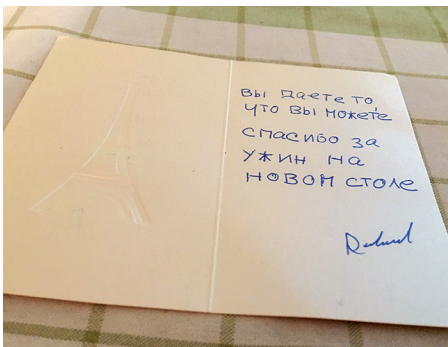 вы даете то,
что вы можете
спасибо за
ужин на
новом столе